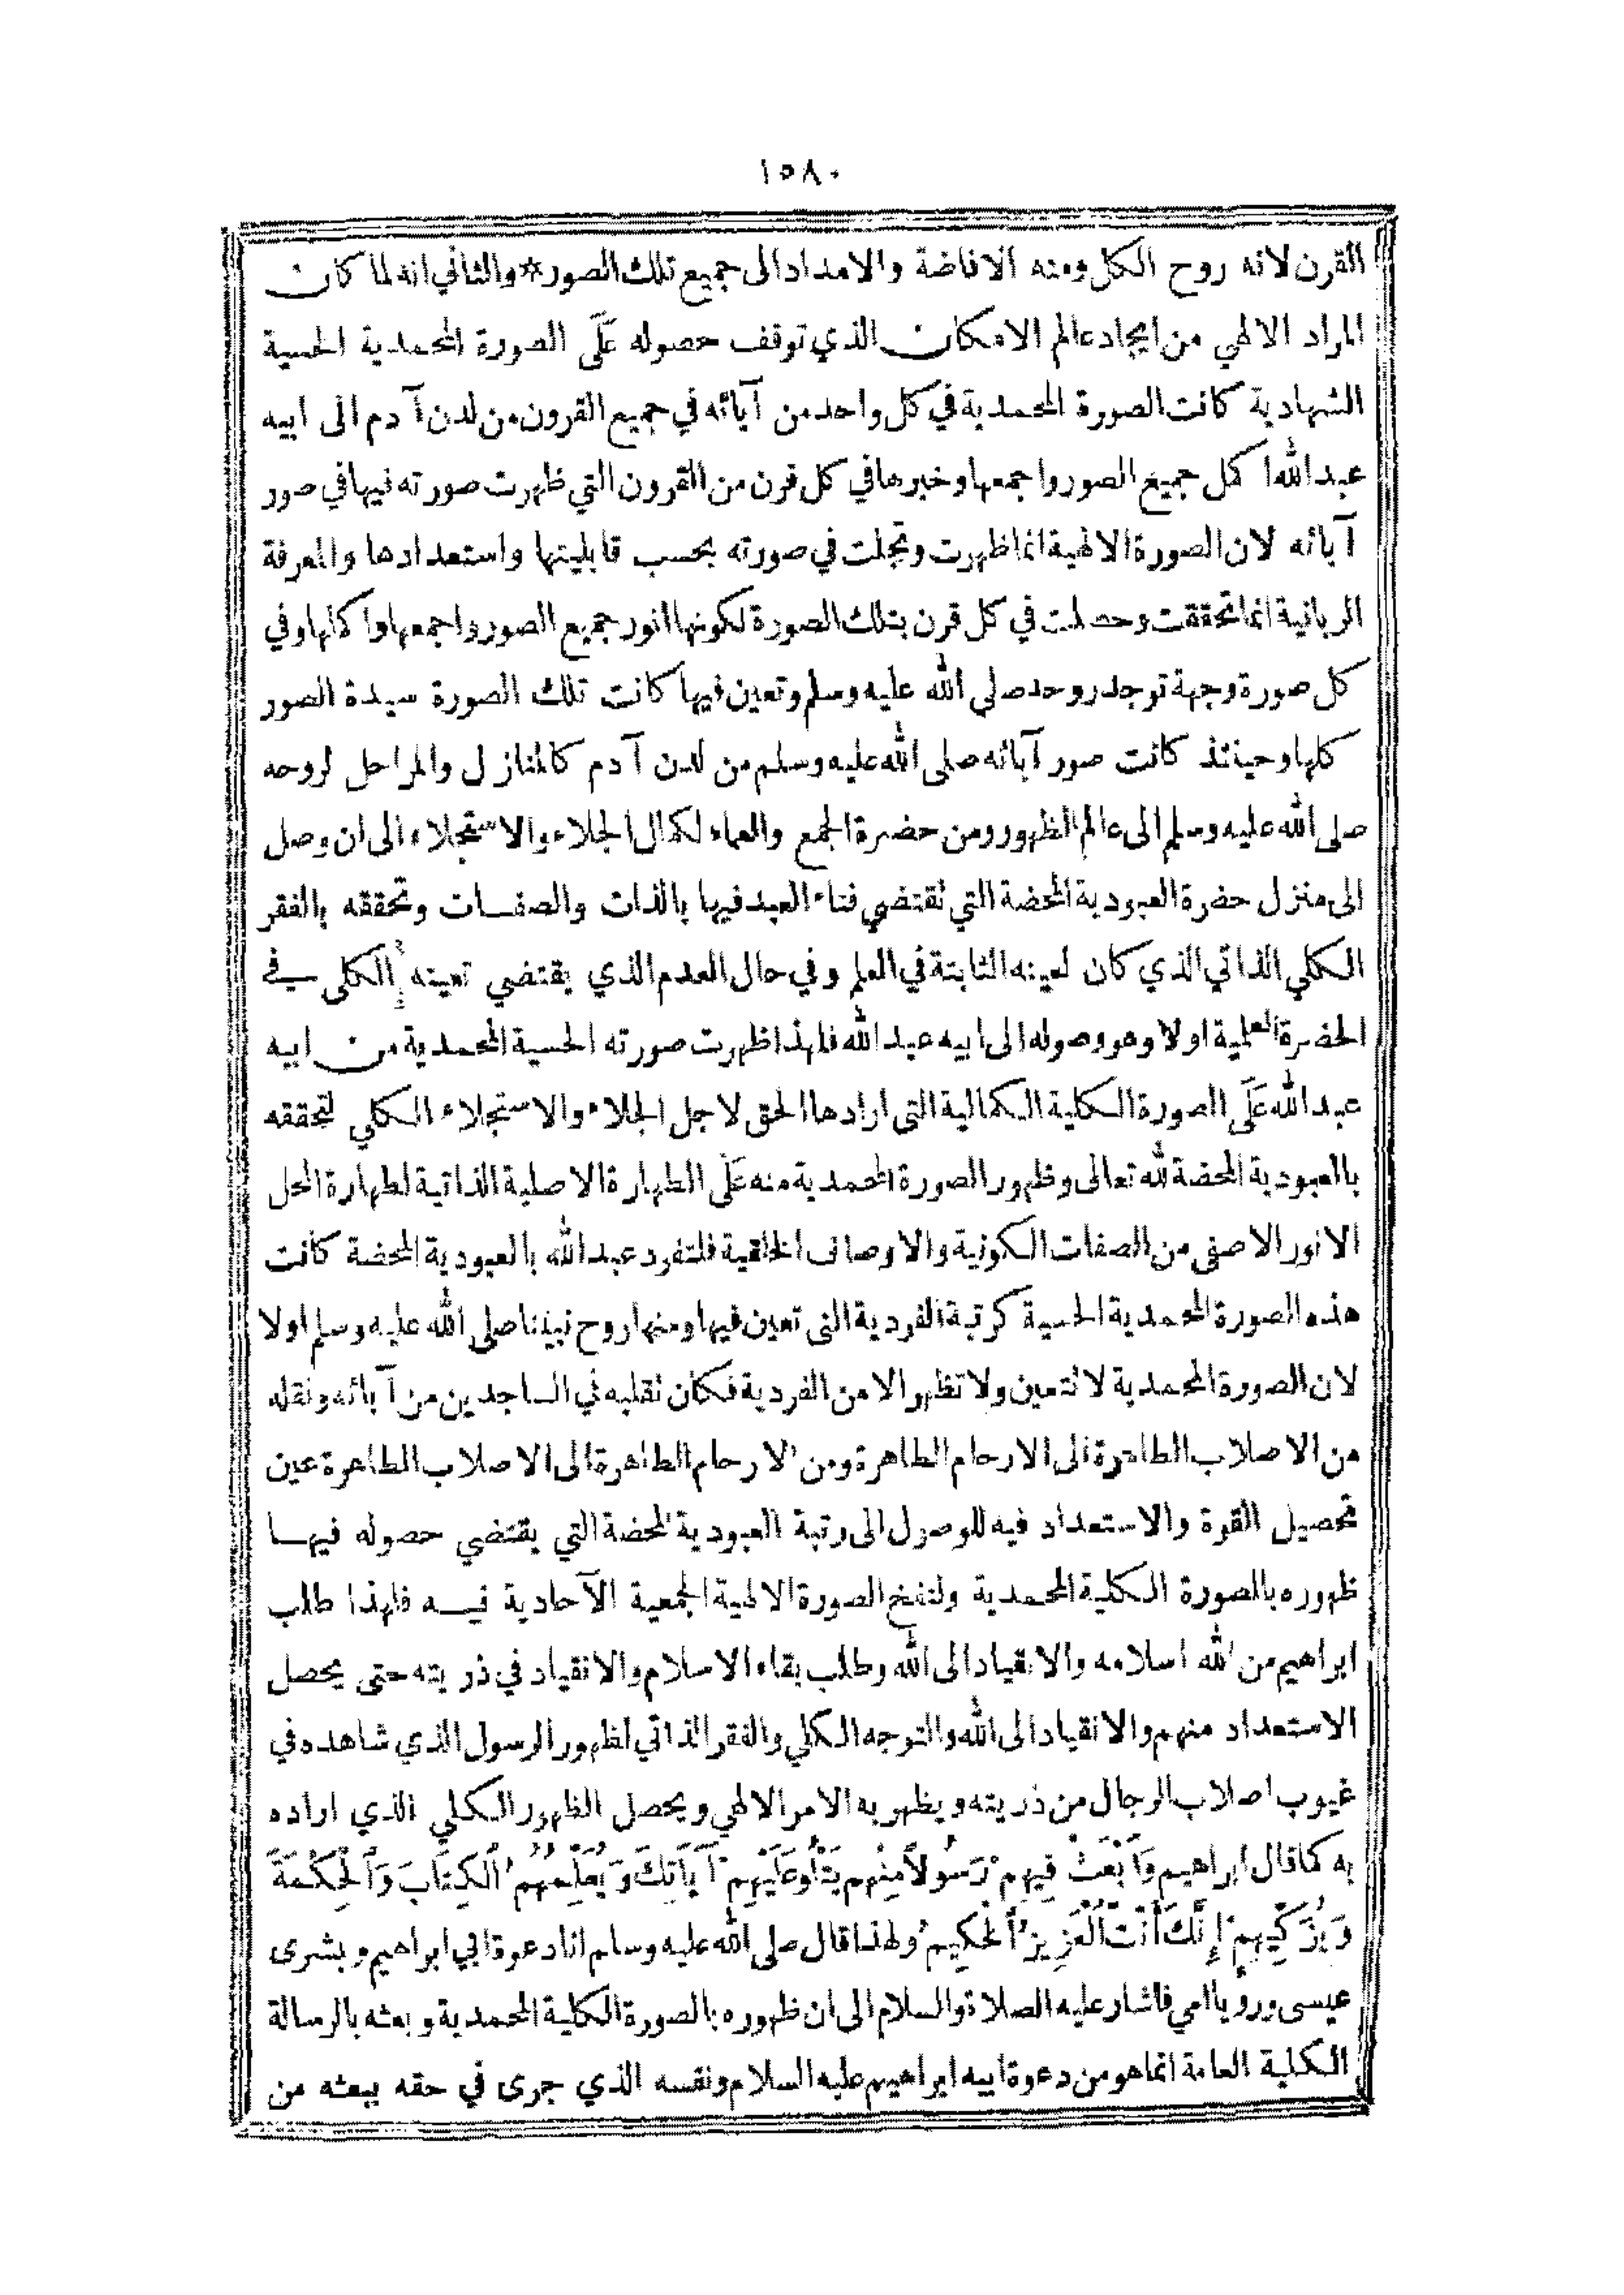 ١٥٨٠
القرن لانه روح الكل ومنه الافاضة والامداد الى جميع تلك الصور * والثاني انه لما كان
المراد الالهي من ايجاد عالم الامكان الذي توقف حصوله عَلَى الصورة المحمدية الحسية
الشهادية كانت الصورة المحمدية في كل واحد من آبائه في جميع القرون من لدن آدم الى ابيه
عبد الله اكمل جميع الصور واجمعها وخيرها في كل قرن من القرون التي ظهرت صورته فيها في صور
آبائه لان الصورة الالهية انما ظهرت وتجلت في صورته بحسب قابليتها واستعدادها والمعرفة
الربانية انما تحققت وحصلت في كل قرن بتلك الصورة لكونها انور جميع الصور واجمعها واكملها وفي
كل صورة وجهة توجد روحه صلى الله عليه وسلم وتعين فيها كانت تلك الصورة سيدة الصور
كلها وحينئذ كانت صور آبائه صلى الله عليه وسلم من لدن آدم كالمنازل والمراحل لروحه
صلى الله عليه وسلم الى عالم الظهور ومن حضرة الجمع والعماء لكمال الجلاء والاستجلاء الى ان وصل
الى منزل حضرة العبودية المحضة التي تقتضي فناء العبد فيها بالذات والصفات وتحققه بالفقر
الكلي الذاتي الذي كان لعينه الثابتة في العلم وفي حال العدم الذي يقتضي تعينه الكلى في
الحضرة العلمية اولا وهو وصوله الى ابيه عبد الله فلهذا ظهرت صورته الحسية المحمدية من ابيه
عبد الله عَلَى الصورة الكلية الكمالية التى ارادها الحق لاجل الجلاء والاستجلاء الكلي لتحققه
بالعبودية المحضة لله تعالى وظهور الصورة المحمدية منه عَلَى الطهارة الاصلية الذاتية لطهارة المحل
الانور الاصفى من الصفات الكونية والاوصاف الخلقية فلتفرد عبد الله بالعبودية المحضة كانت
هذه الصورة المحمدية الحسية كرتبة الفردية التى تعين فيها ومنها روح نبينا صلى الله عليه وسلم اولا
لان الصورة المحمدية لا تتعين ولا تظهر الا من الفردية فكان تقلبه في الساجدين من آبائه ونقله
من الاصلاب الطاهرة الى الارحام الطاهرة ومن الارحام الطاهرة الى الاصلاب الطاهرة عين
تحصيل القوة والاستعداد فيه للوصول الى رتبة العبودية المحضة التي يقتضي حصوله فيها
ظهوره بالصورة الكلية المحمدية ولنفخ الصورة الالهية الجمعية الآحادية فيه فلهذا طلب
ابراهيم من الله اسلامه والانقياد الى الله وطلب بقاء الاسلام والانقياد في ذريته حتى يحصل
الاستعداد منهم والانقياد الى الله والتوجه الكلي والفقر الذاتي لظهور الرسول الذي شاهده في
غيوب اصلاب الرجال من ذريته ويظهر به الامر الالهي ويحصل الظهور الكلي الذي اراده
به كما قال ابراهيم وَٱبْعَثْ فِيهِمْ رَسُولًا مِنْهُم يَتْلُو عَلَيْهِمْ آيَاتِكَ وَيُعَلِّمُهُمُ ٱلْكِتَابَ وَٱلْحِكْمَةَ
وَيُزَكِّيهِمْ إِنَّكَ أَنْتَ ٱلْعَزِيزُ ٱلْحَكِيمُ ولهذا قال صلى الله عليه وسلم انا دعوة ابي ابراهيم وبشرى
عيسى ورؤيا امي فاشار عليه الصلاة والسلام الى ان ظهوره بالصورة الكلية المحمدية وبعثه بالرسالة
الكلية العامة انما هو من دعوة ابيه ابراهيم عليه السلام ونفسه الذي جرى في حقه يبعثه من